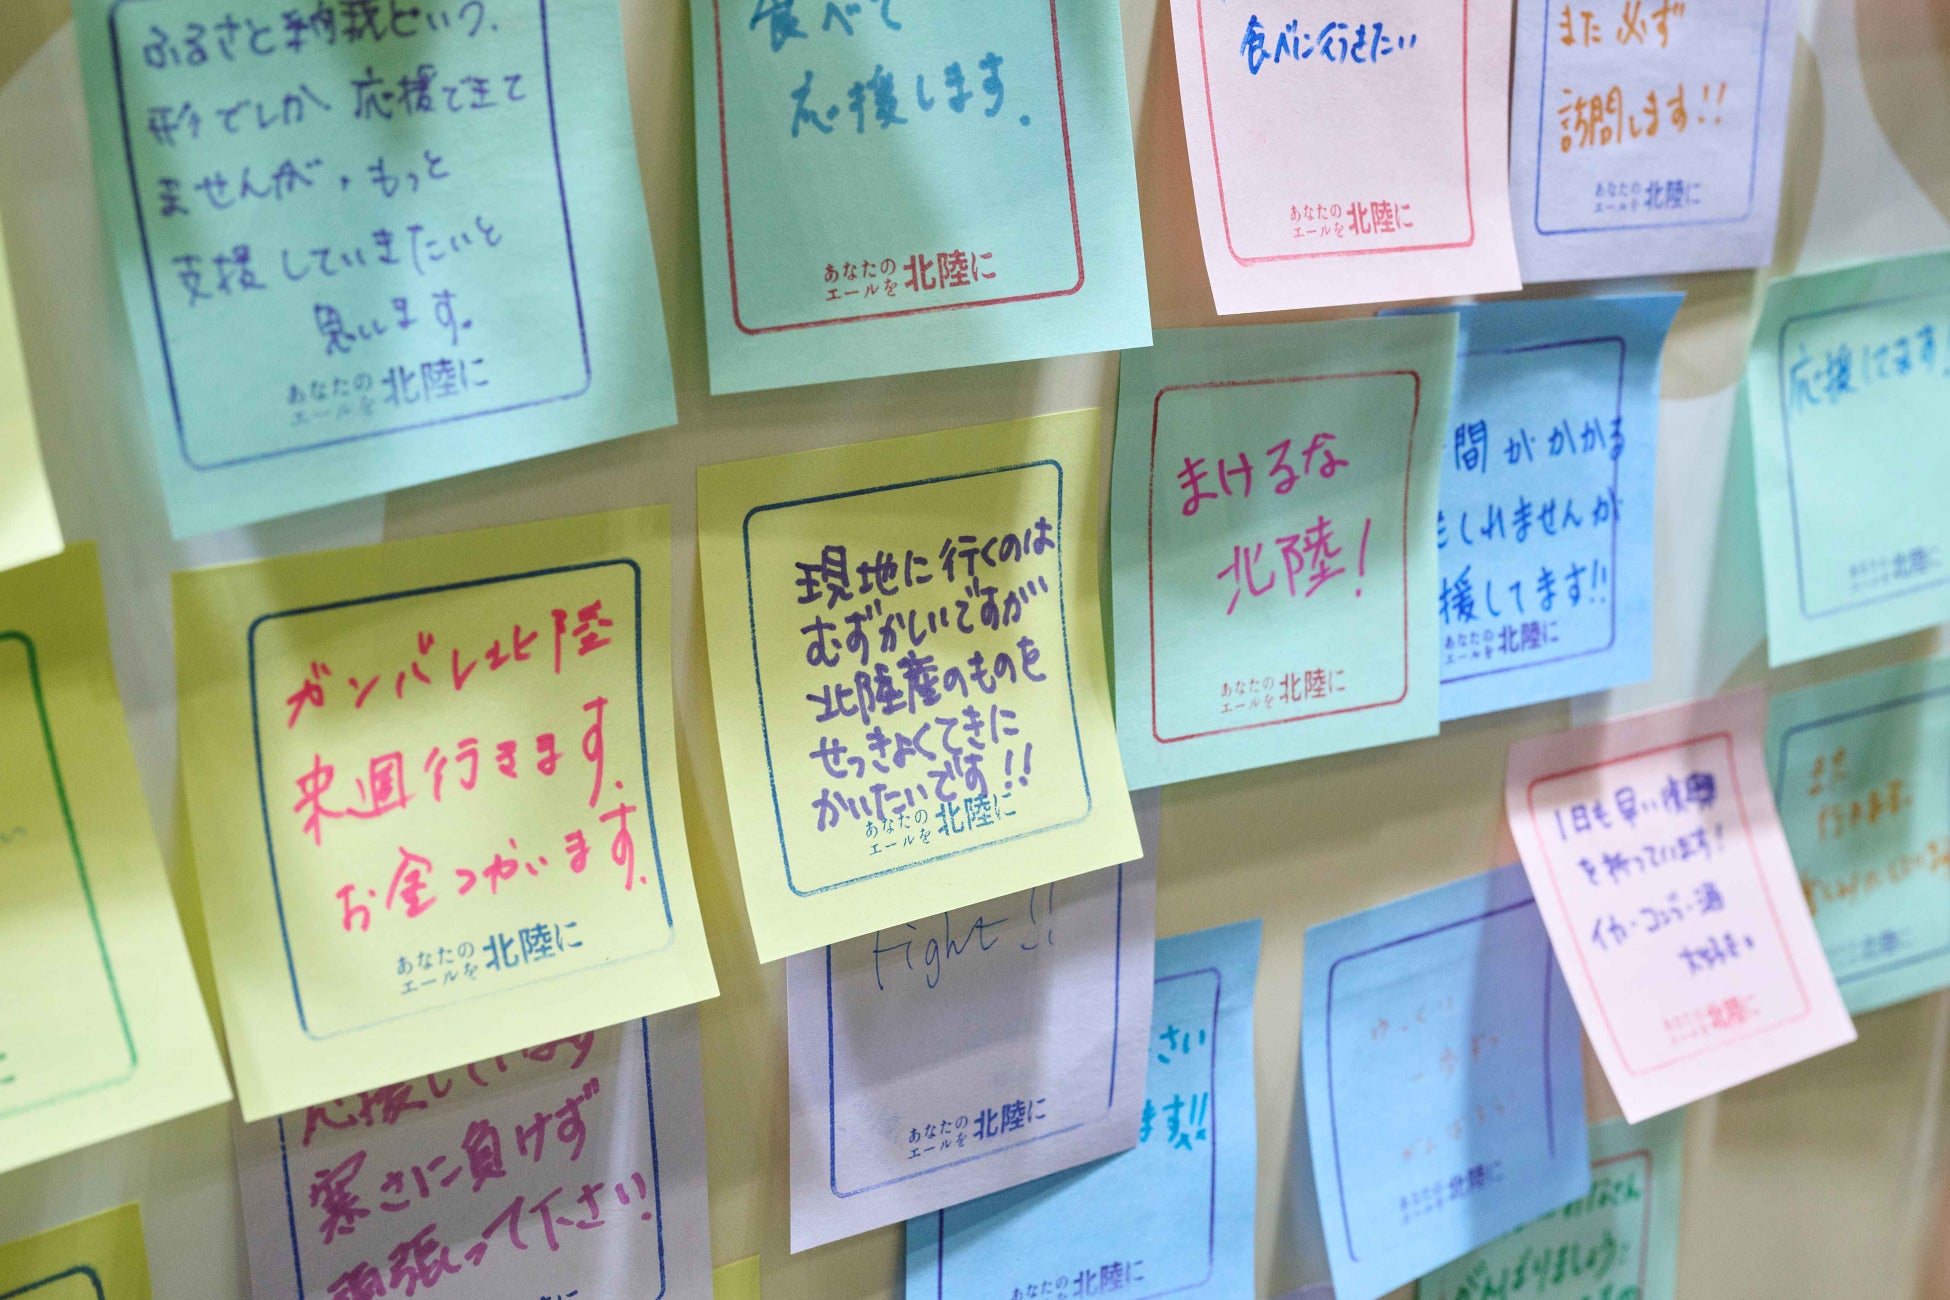 ふるさと納税という.
形でしか応援できて
ませんが、もっと
支援していきたいと
思います。
あなたの
エールを北陸に
食べて
応援します.
あなたの
エールを北陸に
食べに行きたい
あなたの
エールを北陸に
また必ず
訪問します!!
あなたの
エールを北陸に
ガンバレ北陸
来週行きます.
お金つかいます.
あなたの
エールを北陸に
現地に行くのは
むずかしいですが
北陸産のものを
せっきょくてきに
かいたいです!!
あなたの
エールを北陸に
まけるな
北陸!
あなたの
エールを北陸に
間がかかる
もしれませんが
援してます!!
あなたの
エールを北陸に
応援してます
応援しています
寒さに負けず
頑張って下さい!
fight!!
あなたの
エールを北陸に
さい
ます!!
あなたの
エールを北陸に
あなたの
エールを北陸に
1日も早い復興
を祈っています!
イカ・コンブ・酒
大好き。
あなたの
エールを北陸に
また
行きます.
みなさん
がんばりましょう